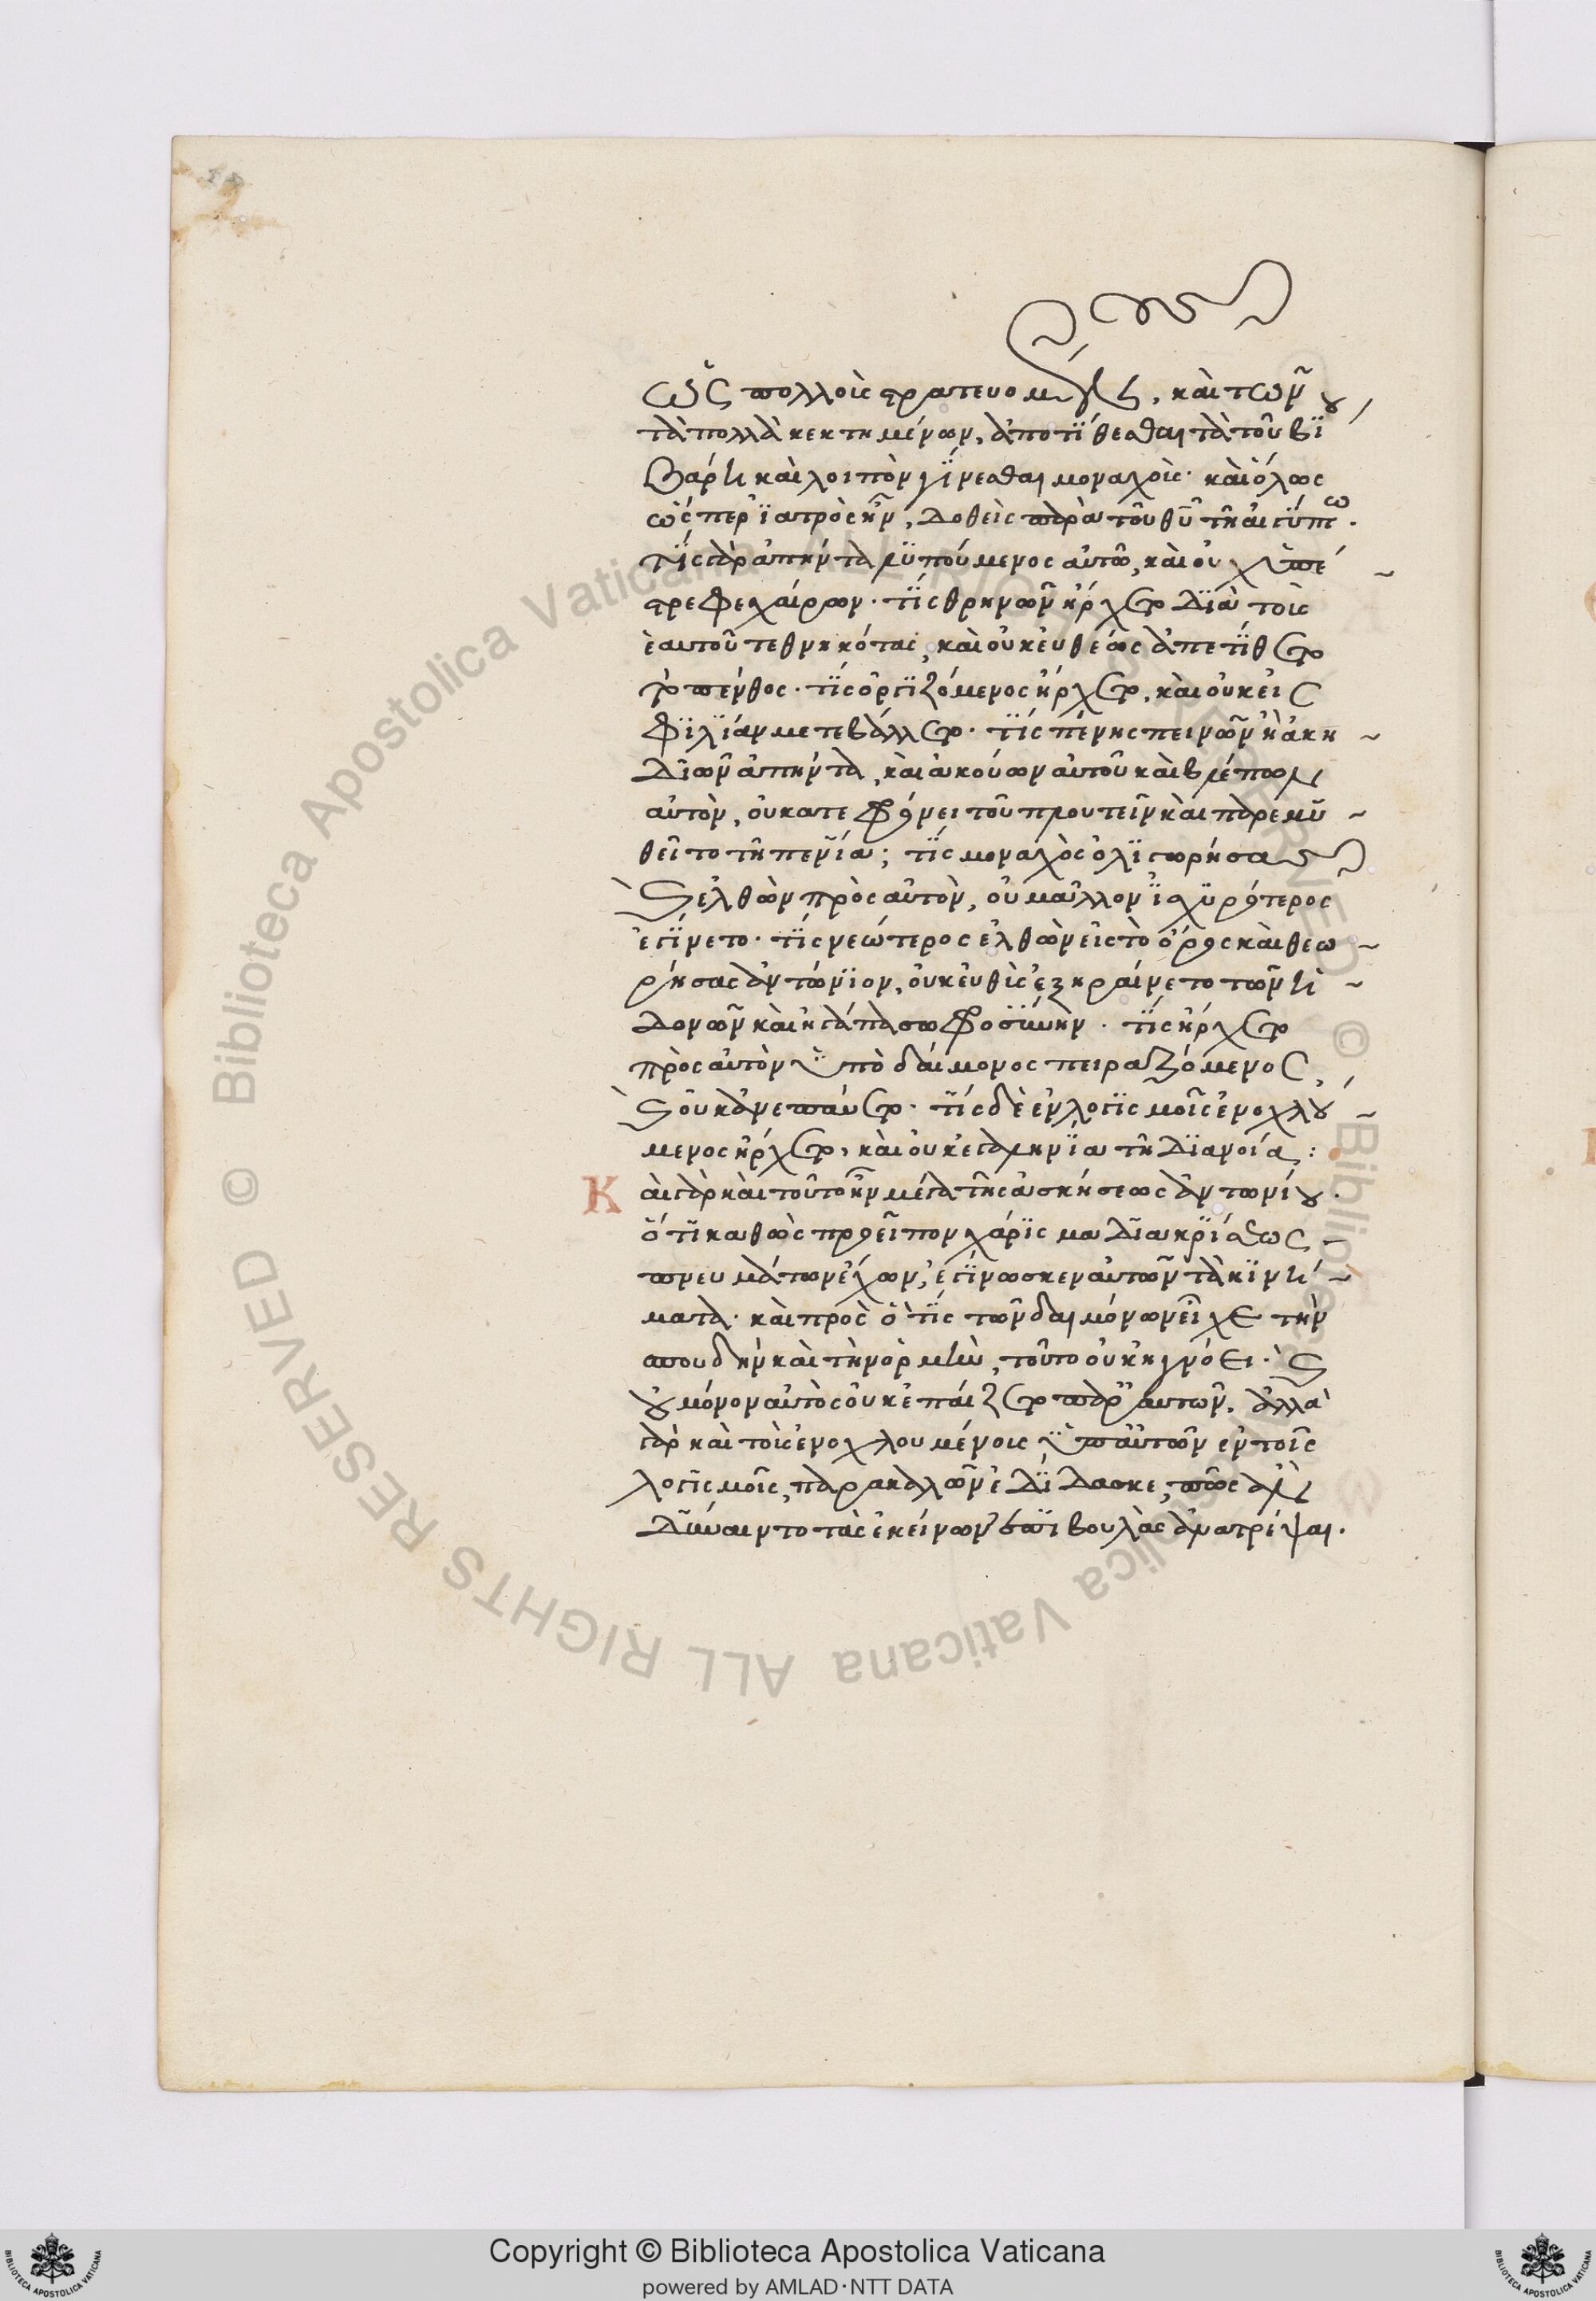 ὡς πολλοὺς στρατευομένους, καὶ τῶν
τὰ πολλὰ κεκτημένων, ἀποτίθεσθαι τὰ τοῦ βίου
βάρη καὶ λοιπὸν γίνεσθαι μοναχοὺς· καὶ ὅλως
ὥσπερ ϊατρὸς ἦν, δοθεὶς παρὰ τοῦ θῦ τῆ αἰγύπτω.
τίς γὰρ ἀπήντα λυπούμενος αὐτῶ, καὶ οὐχ ὑπέ
στρεφε χαίρων· τίς θρηνῶν ἤρχετο διὰ τοὺς
ἑαυτοῦ τεθνηκότας, καὶ οὐκ εὐθέως ἀπετίθετο
τὸ πένθος· τίς ὀργιζόμενος ἤρχετο, καὶ οὐκ εἰς
φιλίαν μετεβάλλετο· τίς πένης πεινῶν ἢ ἀκη
διῶν ἀπήντα, καὶ ἀκούων αὐτοῦ καὶ βλέπων
αὐτὸν, οὐ κατεφρόνει τοῦ πλουτεῖν καὶ παρεμυ
θεῖτο τῆ πενία; τίς μοναχὸς ὀλιγωρήσας
καὶ ἐλθὼν πρὸς αὐτὸν, οὐ μᾶλλον ϊσχυρότερος
ἐγίνετο· τίς νεώτερος ἐλθὼν εἰς τὸ ὄρος καὶ θεω
ρήσας ἀντώνιον, οὐκ εὐθὺς ἐξηραίνετο τῶν ἡ
δονῶν καὶ ἠγάπα σωφροσύνην· τίς ἤρχετο
πρὸς αὐτὸν ὑπὸ δαίμονος πειραζόμενος,
καὶ οὐκ ἀνεπαύετο· τίς δὲ ἐν λογισμοῖς ἐνοχλού
μενος ἤρχετο, καὶ οὐκ ἐγαληνία τῆ διανοία:
Καὶ γὰρ καὶ τοῦτο ἦν μέγα τῆς ἀσκήσεως ἀντωνίου.
ὅτι καθὼς προεῖπον χάρισμα διακρίσεως
πνευμάτων ἔχων, ἐγίνωσκεν αὐτῶν τὰ κινή
ματα· καὶ πρὸς ὅ τις τῶν δαιμόνων εἶχε τὴν
σπουδὴν καὶ τὴν ὁρμὴν, τοῦτο οὐκ ἠγνόει· καὶ
οὐ μόνον αὐτὸς οὐκ ἐπαίζετο παρ' αὐτῶν, ἀλλὰ
γὰρ καὶ τοὺς ἐνοχλουμένους ὑπ' αὐτῶν ἐν τοῖς
λογισμοῖς, παρακαλῶν ἐδίδασκε, πῶς ἂν
δύναιντο τὰς ἐκείνων ἐπιβουλὰς ἀνατρέψαι.
Copyright © Biblioteca Apostolica Vaticana
powered by AMLAD·NTT DATA